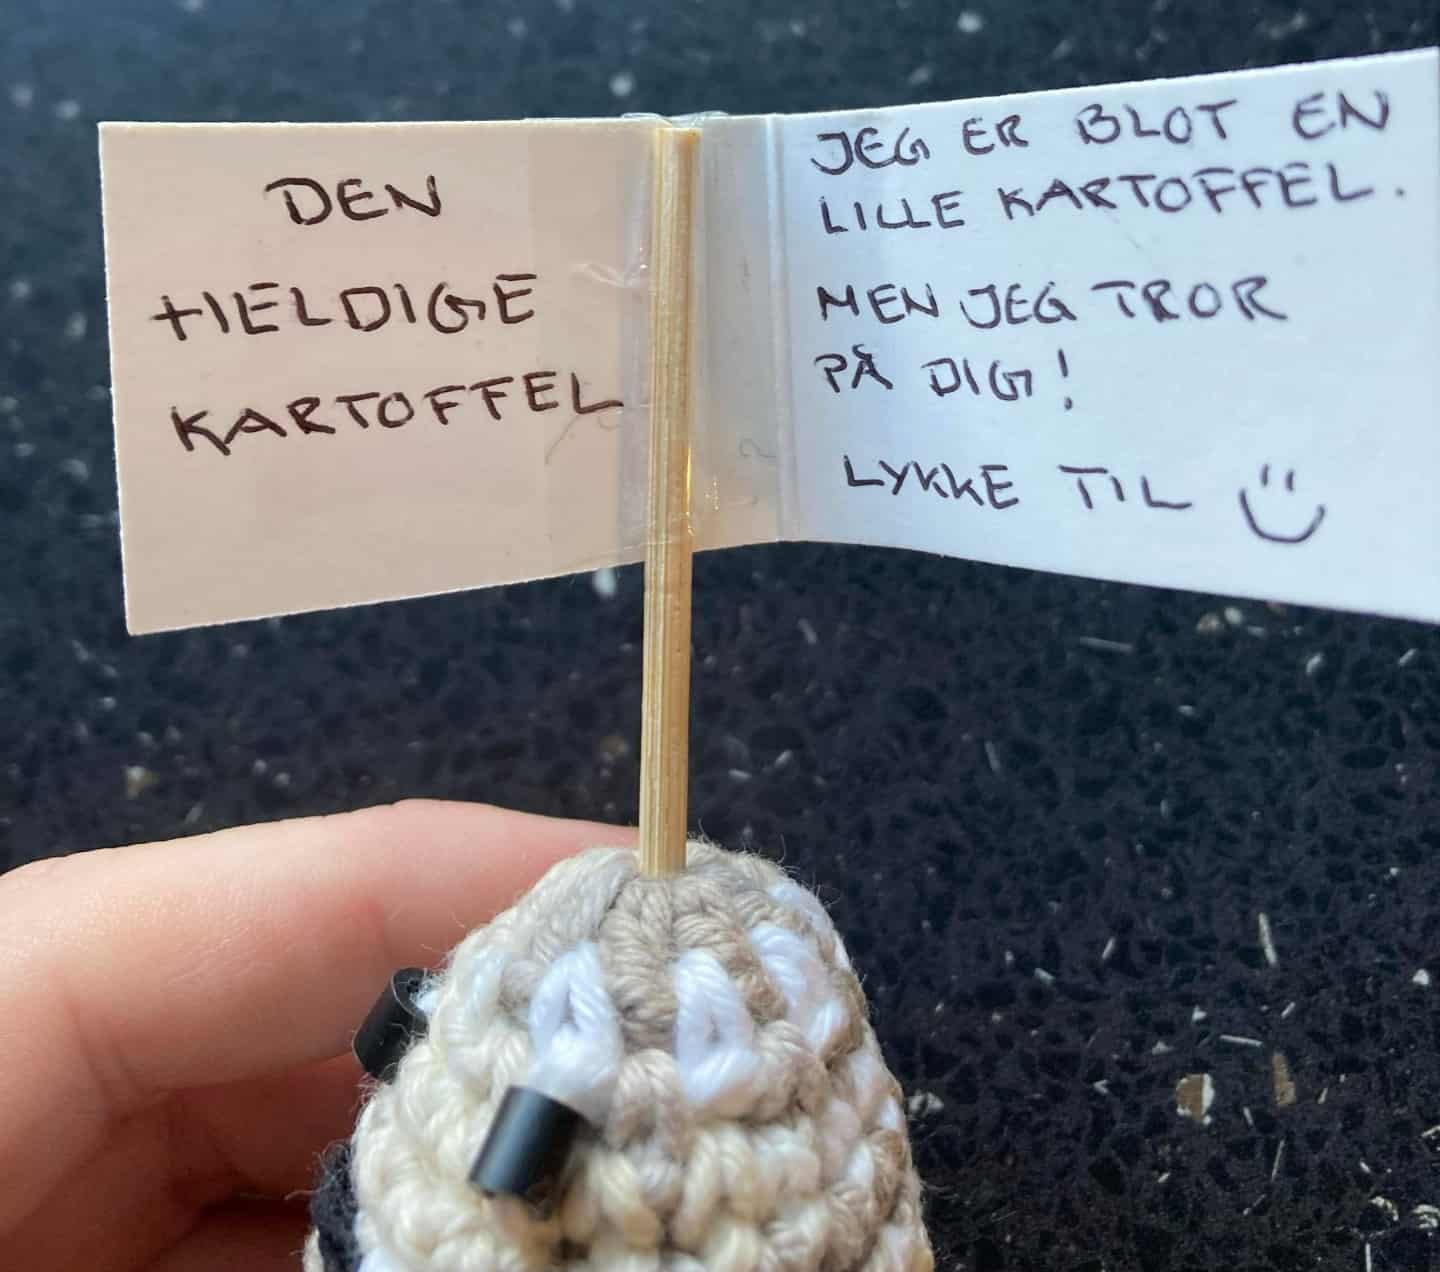 DEN
HELDIGE
KARTOFFEL
JEG ER BLOT EN
LILLE KARTOFFEL.
MEN JEG TROR
PÅ DIG!
LYKKE TIL